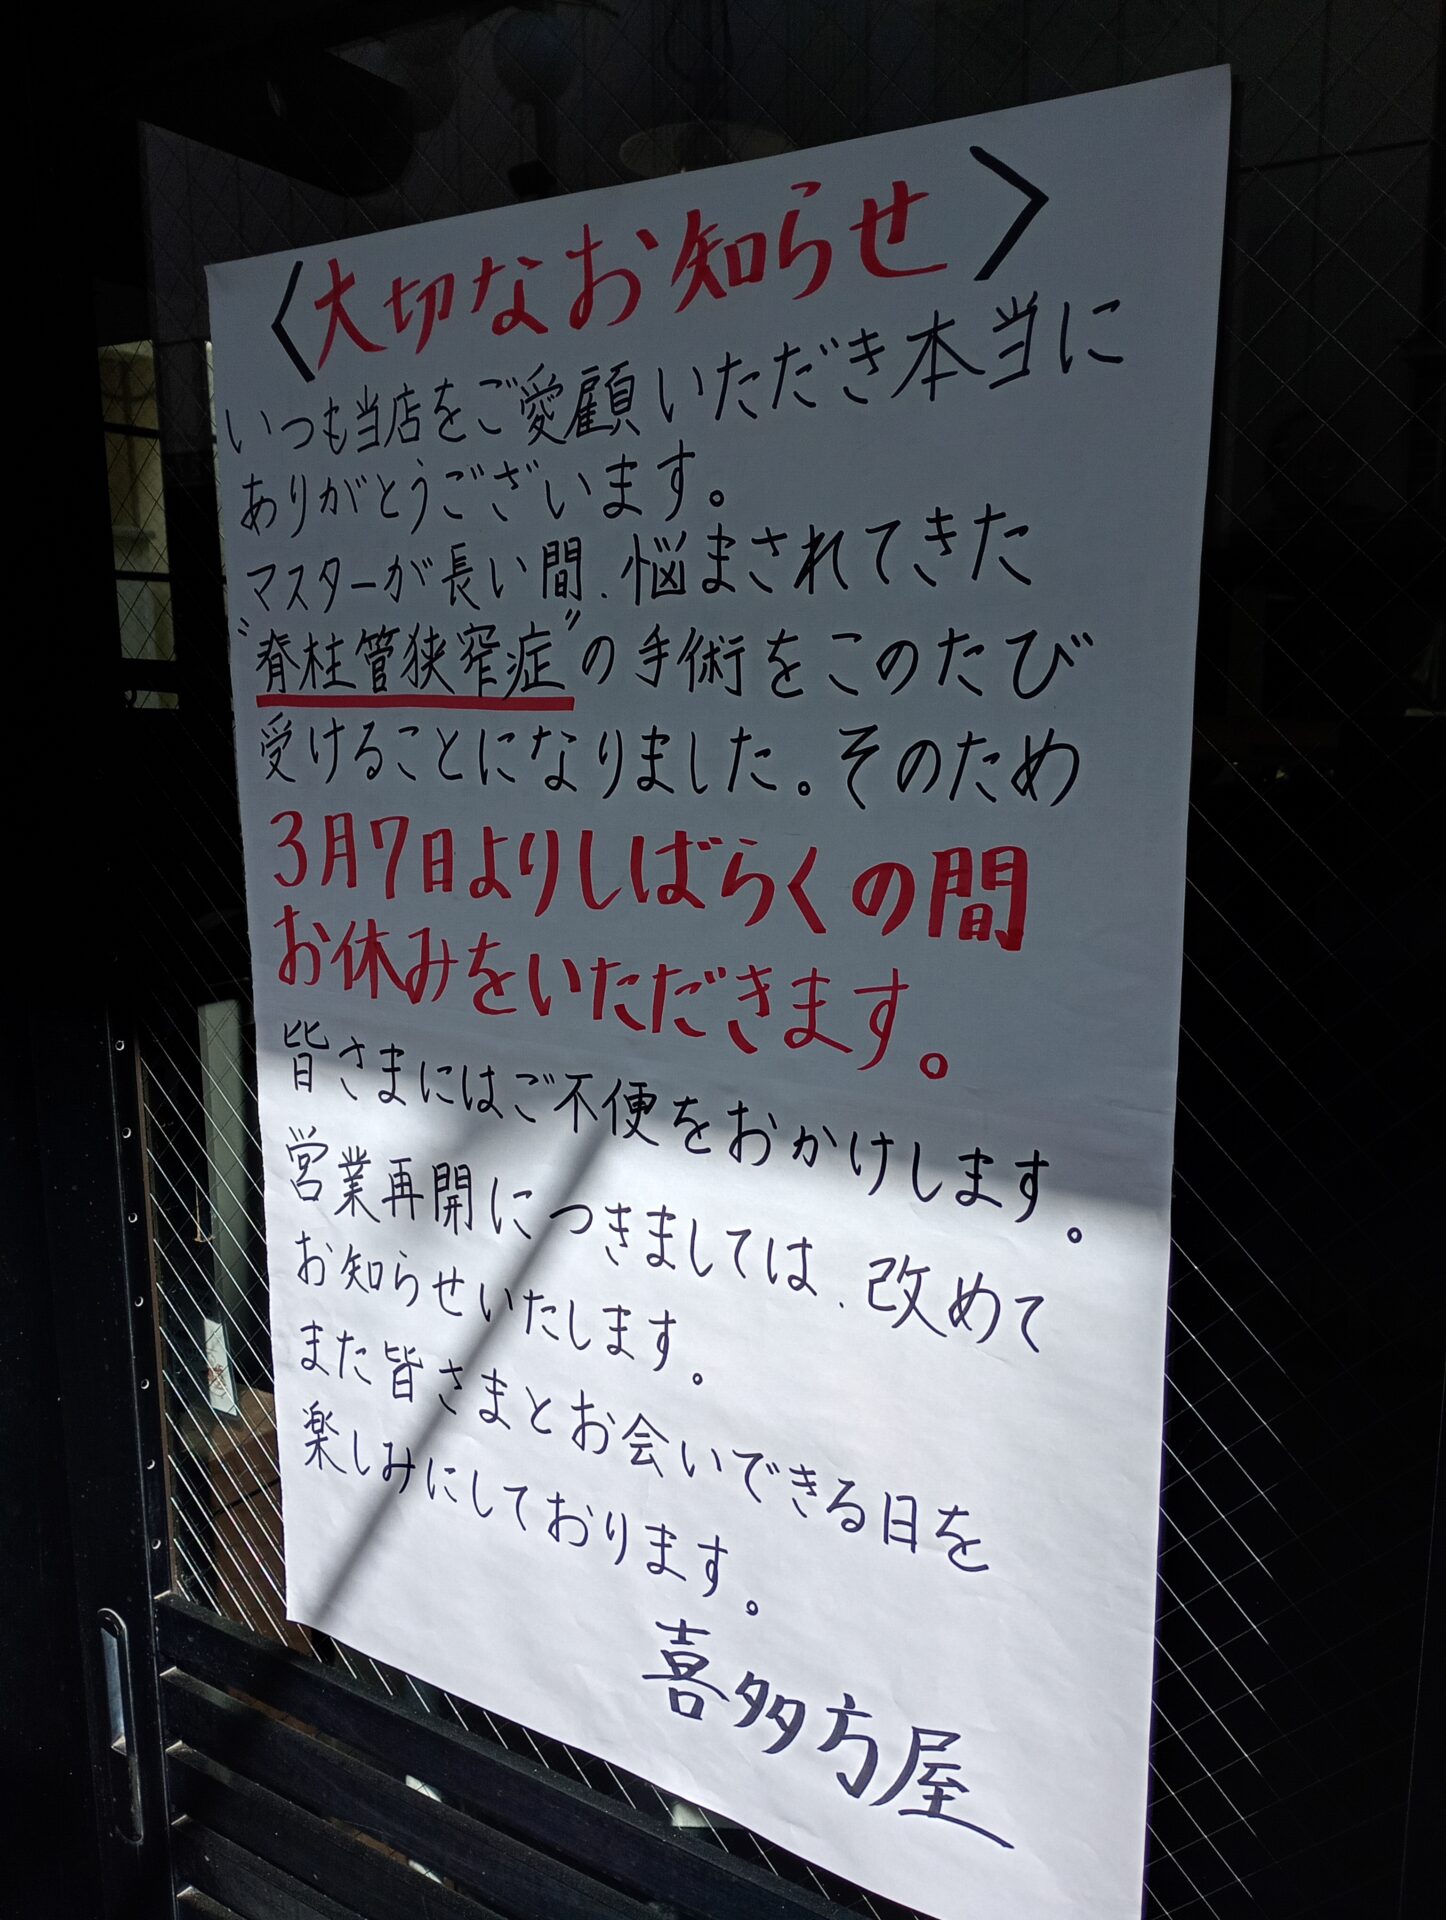 〈大切なお知らせ〉
いつも当店をご愛顧いただき本当に
ありがとうございます。
マスターが長い間、悩まされてきた
〝脊柱管狭窄症〟の手術をこのたび
受けることになりました。そのため
3月7日よりしばらくの間
お休みをいただきます。
皆さまにはご不便をおかけします。
営業再開につきましては、改めて
お知らせいたします。
また皆さまとお会いできる日を
楽しみにしております。
喜多方屋